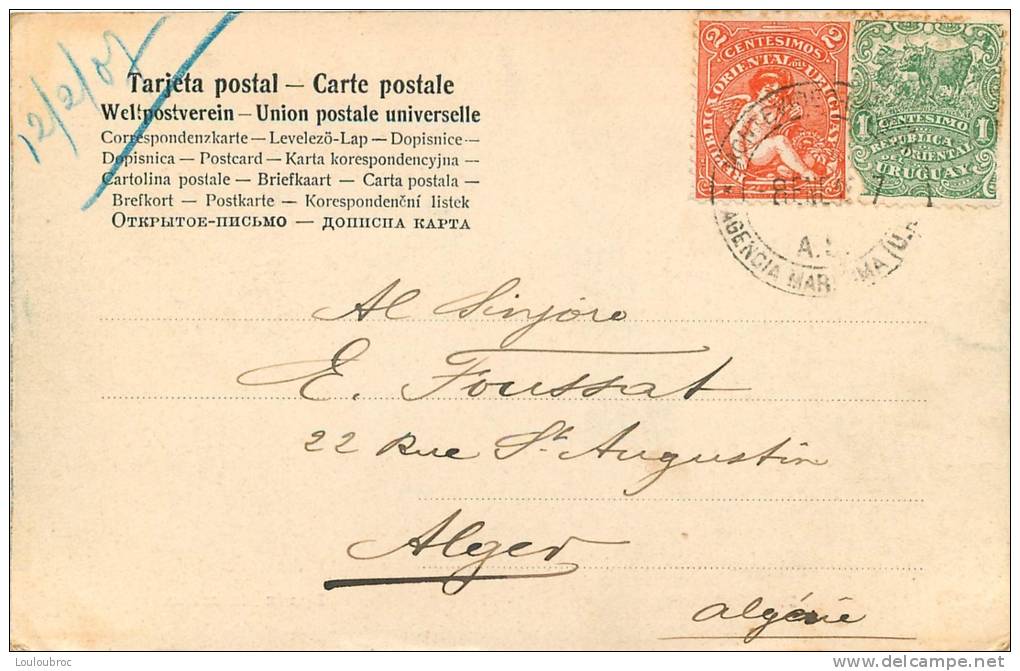 12/2/07
Tarjeta postal — Carte postale
Weltpostverein — Union postale universelle
Correspondenzkarte — Levelező-Lap — Dopisnice
Dopisnica — Postcard — Karta korespondencyjna —
Cartolina postale — Briefkaart — Carta postala —
Brefkort — Postkarte — Korespondenční listek
Открытое-письмо — дописна карта
2 CENTESIMOS 2
REPUBLICA ORIENTAL DEL URUGUAY
1 CENTESIMO 1
REPUBLICA
ORIENTAL
DEL
URUGUAY
7
A.
AGENCIA
Al Sinjoro
E. Foussat
22 Rue St. Augustin
Alger
Algérie
Louloubroc
www.delcampe.net